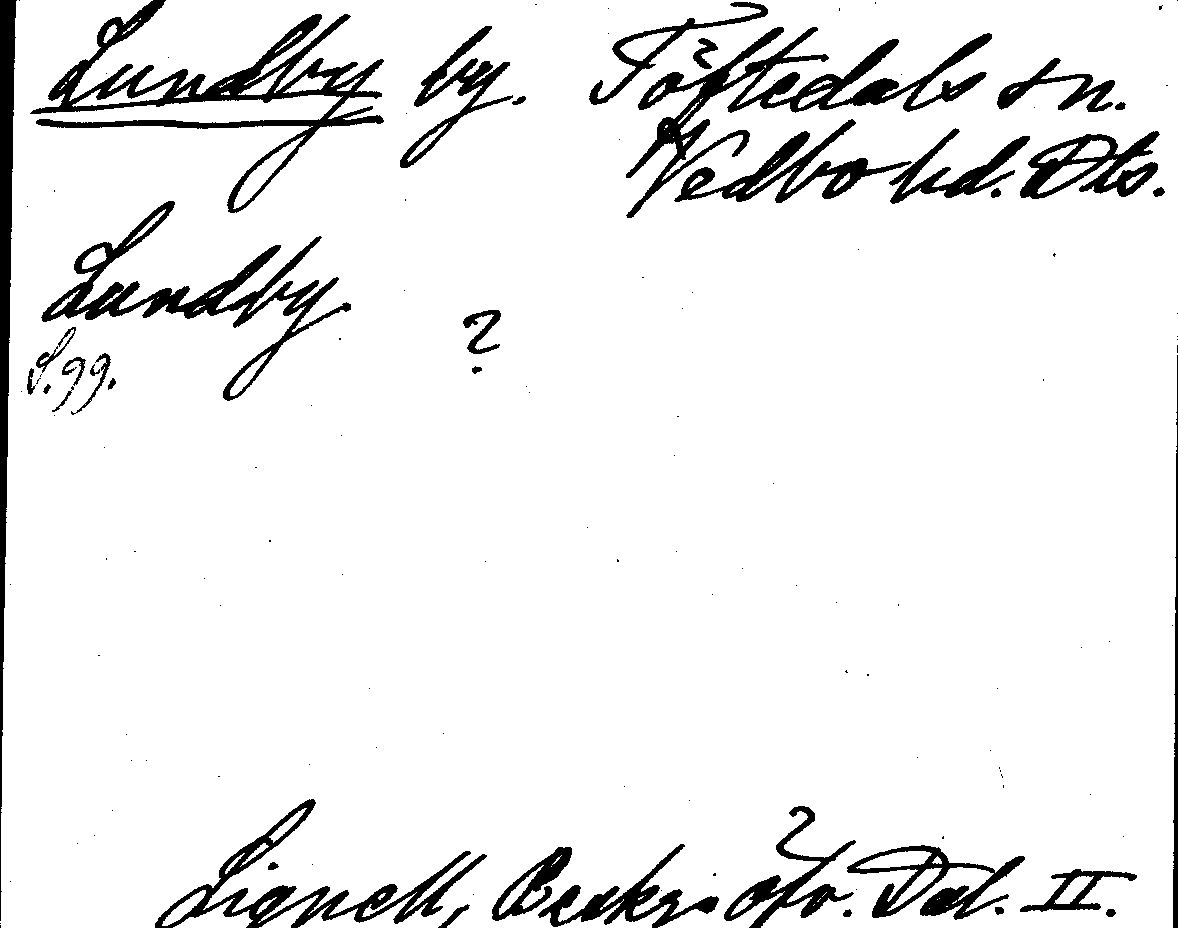 Lundby by. Töftedals sn.
Vedbo hd. Dls.
Lundby. ?
S. 99.
Lignell, Beskr. öfv. Dal. II.